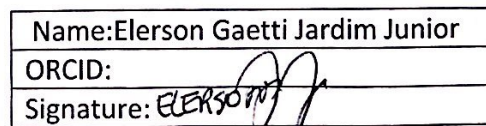 Name:Elerson Gaetti Jardim Junior
ORCID:
Signature: ELERSON